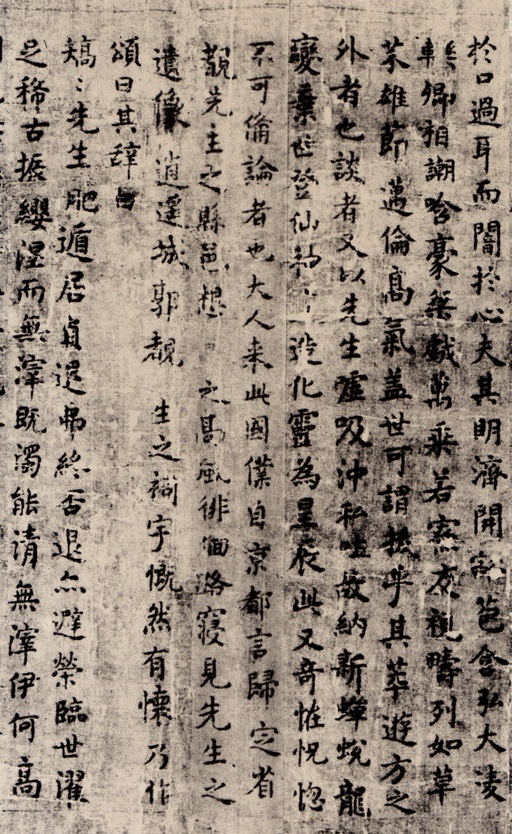 於口過耳而闇於心夫其明濟開豁苞含弘大淩
轢卿相謿哈豪桀戲萬乘若寮友視疇列如草
芥雄節邁倫高氣蓋世可謂拔乎其萃遊方之
外者也談者又以先生噓吸沖和吐故納新蟬蛻龍
變棄世登仙神造化靈為星辰此又奇怪怳惚
不可備論者也大人来此國僕自京都言歸定省
覩先生之縣邑想之高風徘徊路寢見先生之
遺像逍遥城郭覩生之祠宇慨然有懷乃作
頌曰其辭曰
矯〻先生肥遁居貞退弗終否退亦避榮臨世濯
足稀古振纓涅而無滓既濁能清無滓伊何高